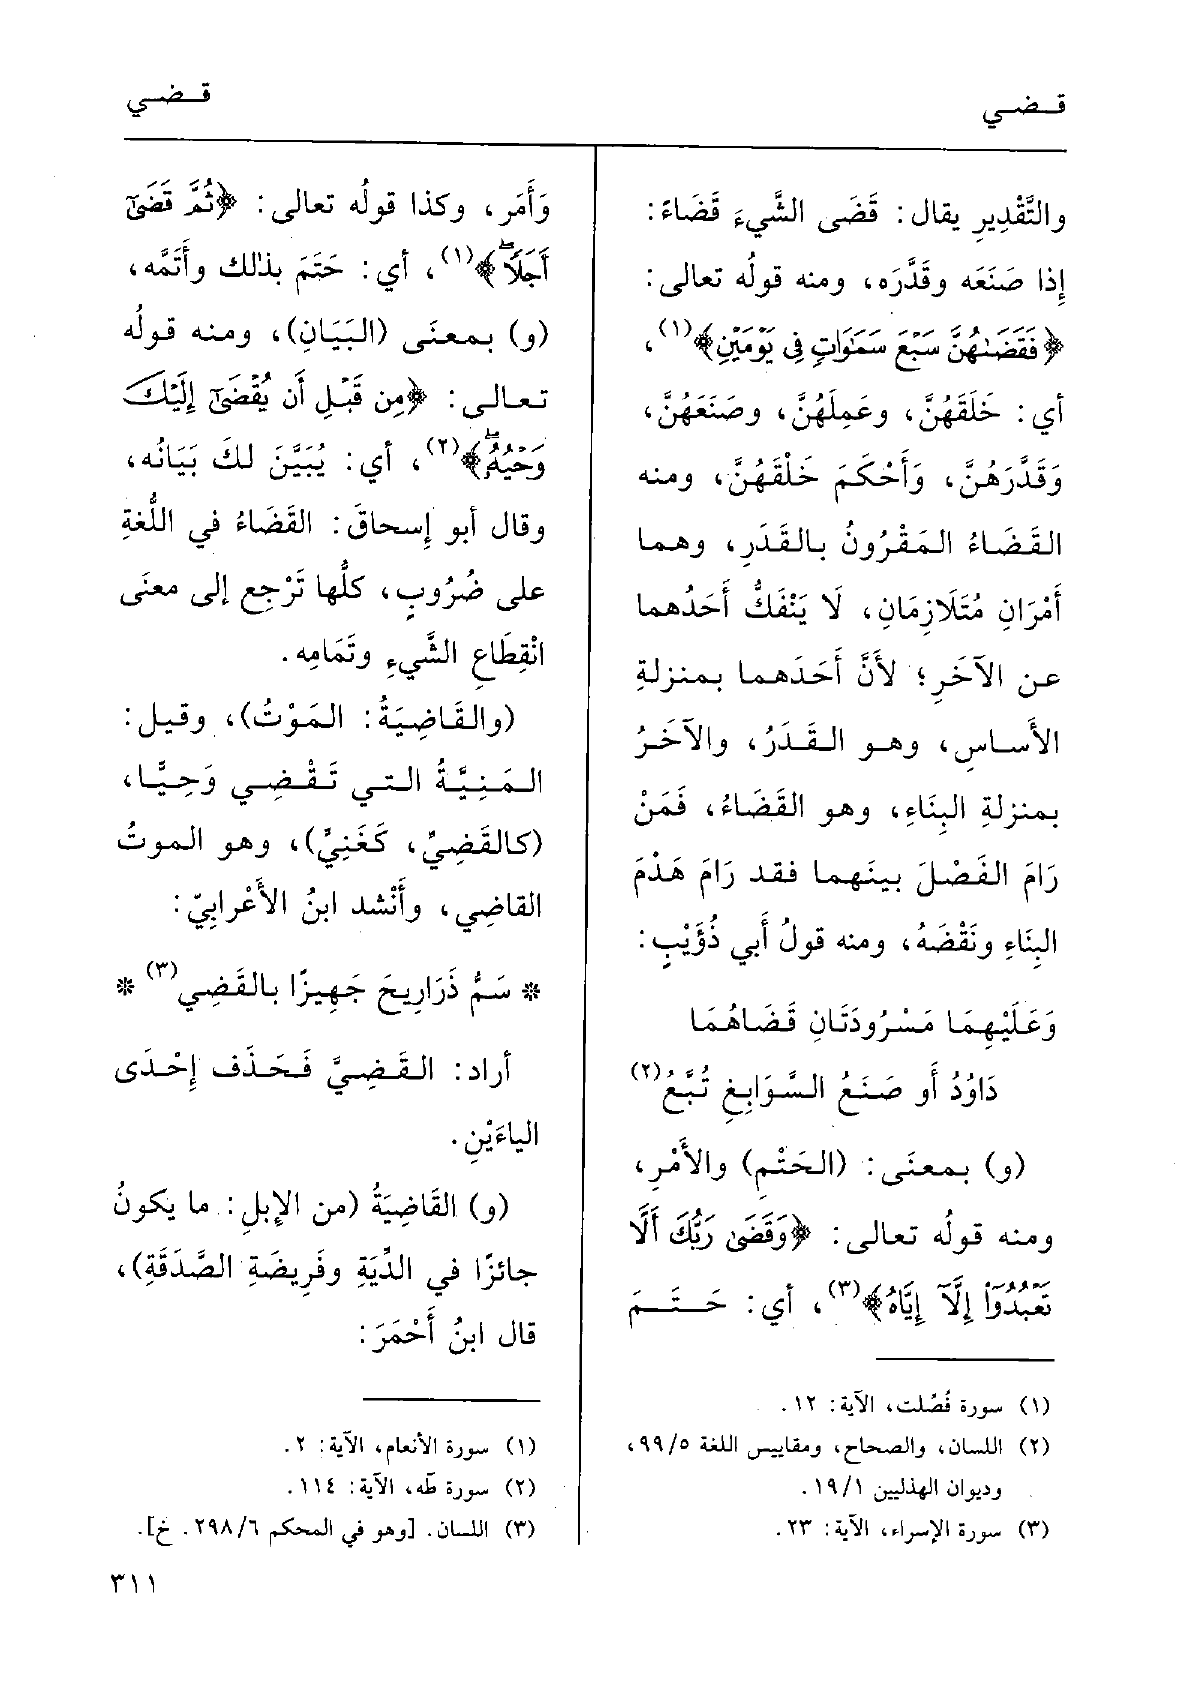 قـضـي
قـضـي
والتَّقْدِيرِ يقال: قَضَى الشَّيءَ قَضَاءً:
إذا صَنَعَه وقَدَّرَه، ومنه قولُه تعالى:
﴿فَقَضَىٰهُنَّ سَبْعَ سَمَٰوَاتٍ فِى يَوْمَيْنِ﴾(١)،
أي: خَلَقَهُنَّ، وعَمِلَهُنَّ، وصَنَعَهُنَّ،
وَقَدَّرَهُنَّ، وَأَحْكَمَ خَلْقَهُنَّ، ومنه
القَضَاءُ المَقْرُونُ بالقَدَرِ، وهما
أَمْرَانِ مُتَلَازِمَانِ، لَا يَنْفَكُّ أَحَدُهما
عن الآخَرِ؛ لأَنَّ أَحَدَهما بمنزلةِ
الأساسِ، وهو القَدَرُ، والآخَرُ
بمنزلةِ البِنَاءِ، وهو القَضَاءُ، فَمَنْ
رَامَ الفَصْلَ بينَهما فقد رَامَ هَدْمَ
البِنَاءِ ونَقْضَهُ، ومنه قولُ أَبي ذُؤَيْبٍ:
وَعَلَيْهِمَا مَسْرُودَتَانِ قَضَاهُمَا
دَاوُدُ أَو صَنَعُ السَّوَابِغِ تُبَّعُ(٢)
(و) بمعنَى: (الحَتْمِ) والأَمْرِ،
ومنه قولُه تعالى: ﴿وَقَضَىٰ رَبُّكَ أَلَّا
تَعْبُدُوٓا۟ إِلَّآ إِيَّاهُ﴾(٣)، أي: حَـتَـمَ
(١) سورة فُصّلت، الآية: ١٢.
(٢) اللسان، والصحاح، ومقاييس اللغة ٩٩/٥،
وديوان الهذليين ١٩/١.
(٣) سورة الإسراء، الآية: ٢٣.
وَأَمَر، وكذا قولُه تعالى: ﴿ثُمَّ قَضَىٰٓ
أَجَلًاۖ﴾(١)، أي: حَتَمَ بذلك وأَتَمَّه،
(و) بمعنَى (البَيَانِ)، ومنه قولُه
تعالى: ﴿مِن قَبْلِ أَن يُقْضَىٰٓ إِلَيْكَ
وَحْيُهُۥۖ﴾(٢)، أي: يُبَيَّنَ لكَ بَيَانُه،
وقال أبو إِسحاقَ: القَضَاءُ في اللُّغةِ
على ضُرُوبٍ، كلُّها تَرْجِع إلى معنَى
انْقِطَاعِ الشَّيءِ وتَمَامِه.
(والقَاضِيَةُ: المَوْتُ)، وقيل:
المَنِيَّةُ التي تَقْضِي وَحِيًّا،
(كالقَضِيِّ، كَغَنِيٍّ)، وهو الموتُ
القاضِي، وأَنْشد ابنُ الأَعْرابيّ:
* سَمُّ ذَرَارِيحَ جَهِيزًا بالقَضِي(٣) *
أراد: القَضِيَّ فَحَذَف إِحْدَى
الياءَيْنِ.
(و) القَاضِيَةُ (من الإِبلِ: ما يكونُ
جائزًا في الدِّيَةِ وفَرِيضَةِ الصَّدَقَةِ)،
قال ابنُ أَحْمَرَ:
(١) سورة الأنعام، الآية: ٢.
(٢) سورة طه، الآية: ١١٤.
(٣) اللسان. [وهو في المحكم ٢٩٨/٦. خ].
٣١١